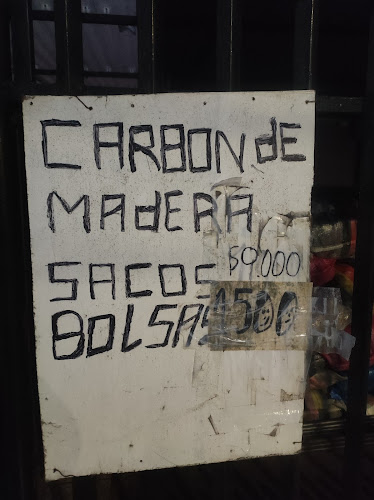 CARBON dE
MAdERA
SACOS $9.000
BOLSAS 1500